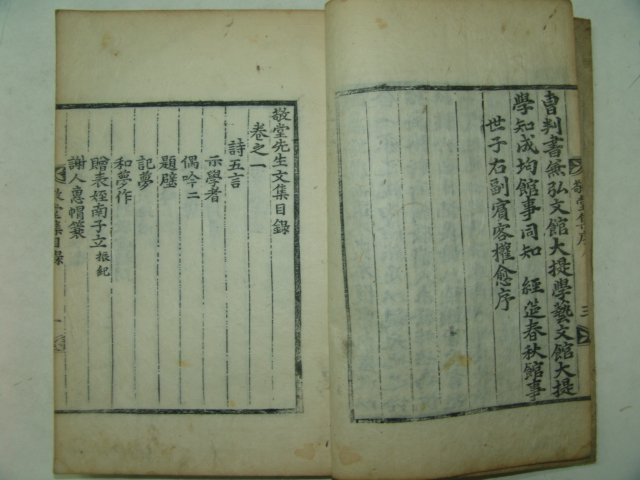 曺判書兼弘文館大提學藝文館大提
學知成均館事同知 經筵春秋館事
世子右副賓客權愈序
敬堂集序
三
敬堂先生文集目錄
卷之一
詩五言
示學者
偶吟二
題壁
記夢
和夢作
贈表姪南子立振紀
謝人惠帽簑
敬堂集目錄
一